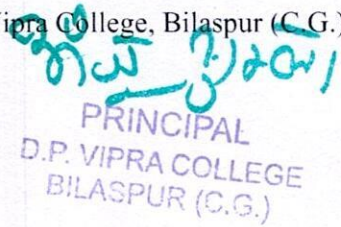 Vipra College, Bilaspur (C.G.)
PRINCIPAL
D.P. VIPRA COLLEGE
BILASPUR (C.G.)